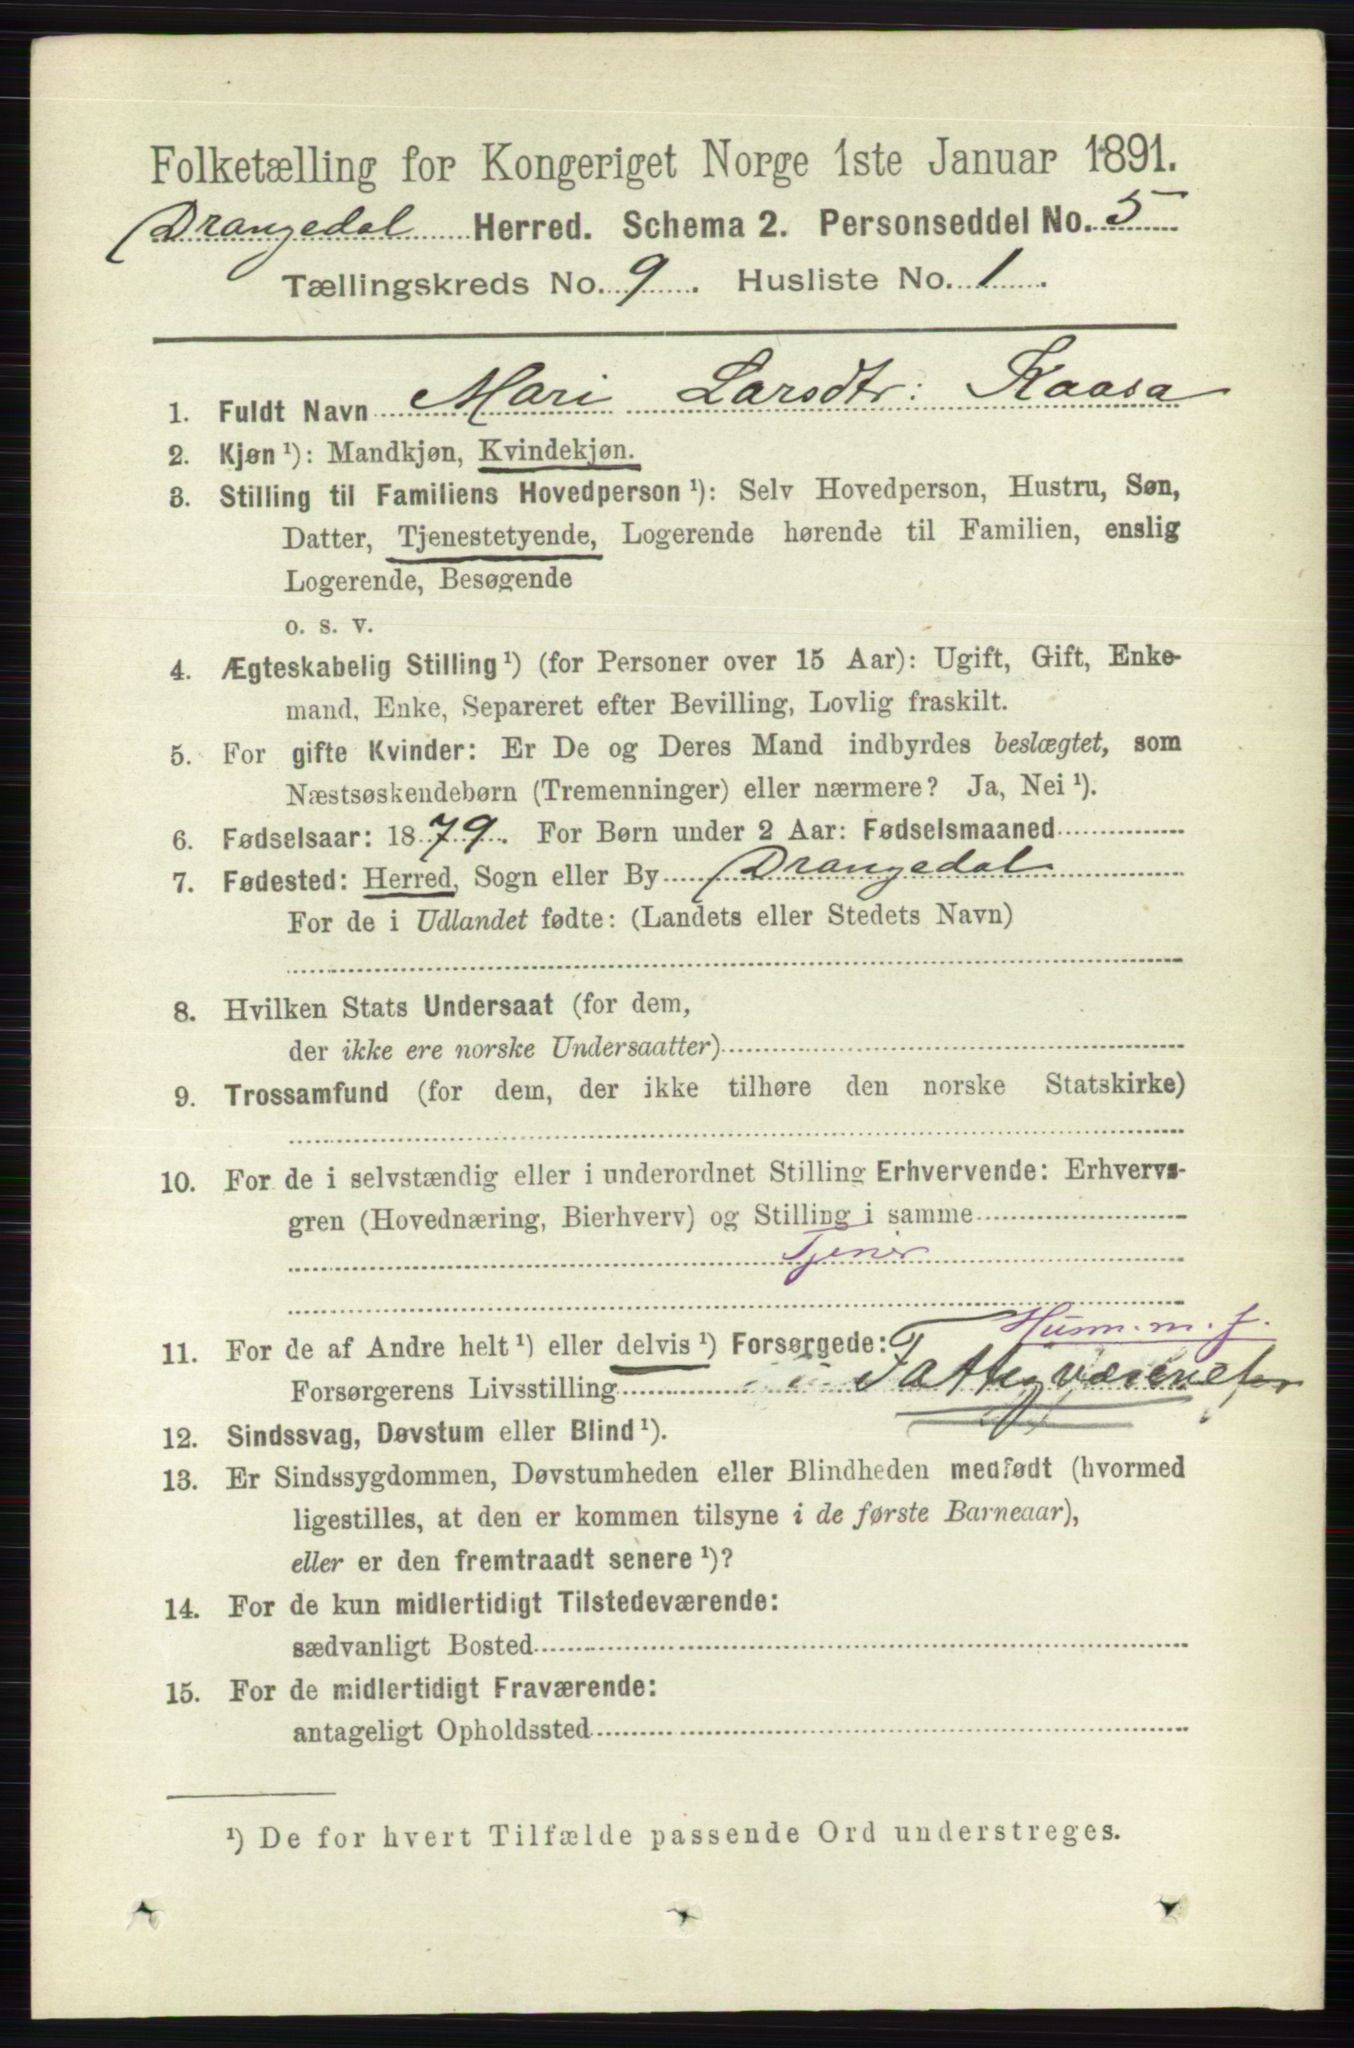 Folketælling for Kongeriget Norge 1ste Januar 1891.
Drangedal Herred. Schema 2. Personseddel No. 5
Tællingskreds No. 9. Husliste No. 1.
1. Fuldt Navn Mari Larsdtr: Kaasa
2. Kjøn ¹): Mandkjøn, Kvindekjøn.
3. Stilling til Familiens Hovedperson ¹): Selv Hovedperson, Hustru, Søn,
Datter, Tjenestetyende, Logerende hørende til Familien, enslig
Logerende, Besøgende
o. s. v.
4. Ægteskabelig Stilling ¹) (for Personer over 15 Aar): Ugift, Gift, Enke-
mand, Enke, Separeret efter Bevilling, Lovlig fraskilt.
5. For gifte Kvinder: Er De og Deres Mand indbyrdes beslægtet, som
Næstsøskendebørn (Tremenninger) eller nærmere? Ja, Nei ¹).
6. Fødselsaar: 1879. For Børn under 2 Aar: Fødselsmaaned
7. Fødested: Herred, Sogn eller By Drangedal
For de i Udlandet fødte: (Landets eller Stedets Navn)
8. Hvilken Stats Undersaat (for dem,
der ikke ere norske Undersaatter)
9. Trossamfund (for dem, der ikke tilhøre den norske Statskirke)
10. For de i selvstændig eller i underordnet Stilling Erhvervende: Erhvervs-
gren (Hovednæring, Bierhverv) og Stilling i samme
Tjener
Husm. m. j.
11. For de af Andre helt ¹) eller delvis ¹) Forsørgede:
Forsørgerens Livsstilling Fattigvæsenet
12. Sindssvag, Døvstum eller Blind ¹).
13. Er Sindssygdommen, Døvstumheden eller Blindheden medfødt (hvormed
ligestilles, at den er kommen tilsyne i de første Barneaar),
eller er den fremtraadt senere ¹)?
14. For de kun midlertidigt Tilstedeværende:
sædvanligt Bosted
15. For de midlertidigt Fraværende:
antageligt Opholdssted
¹) De for hvert Tilfælde passende Ord understreges.